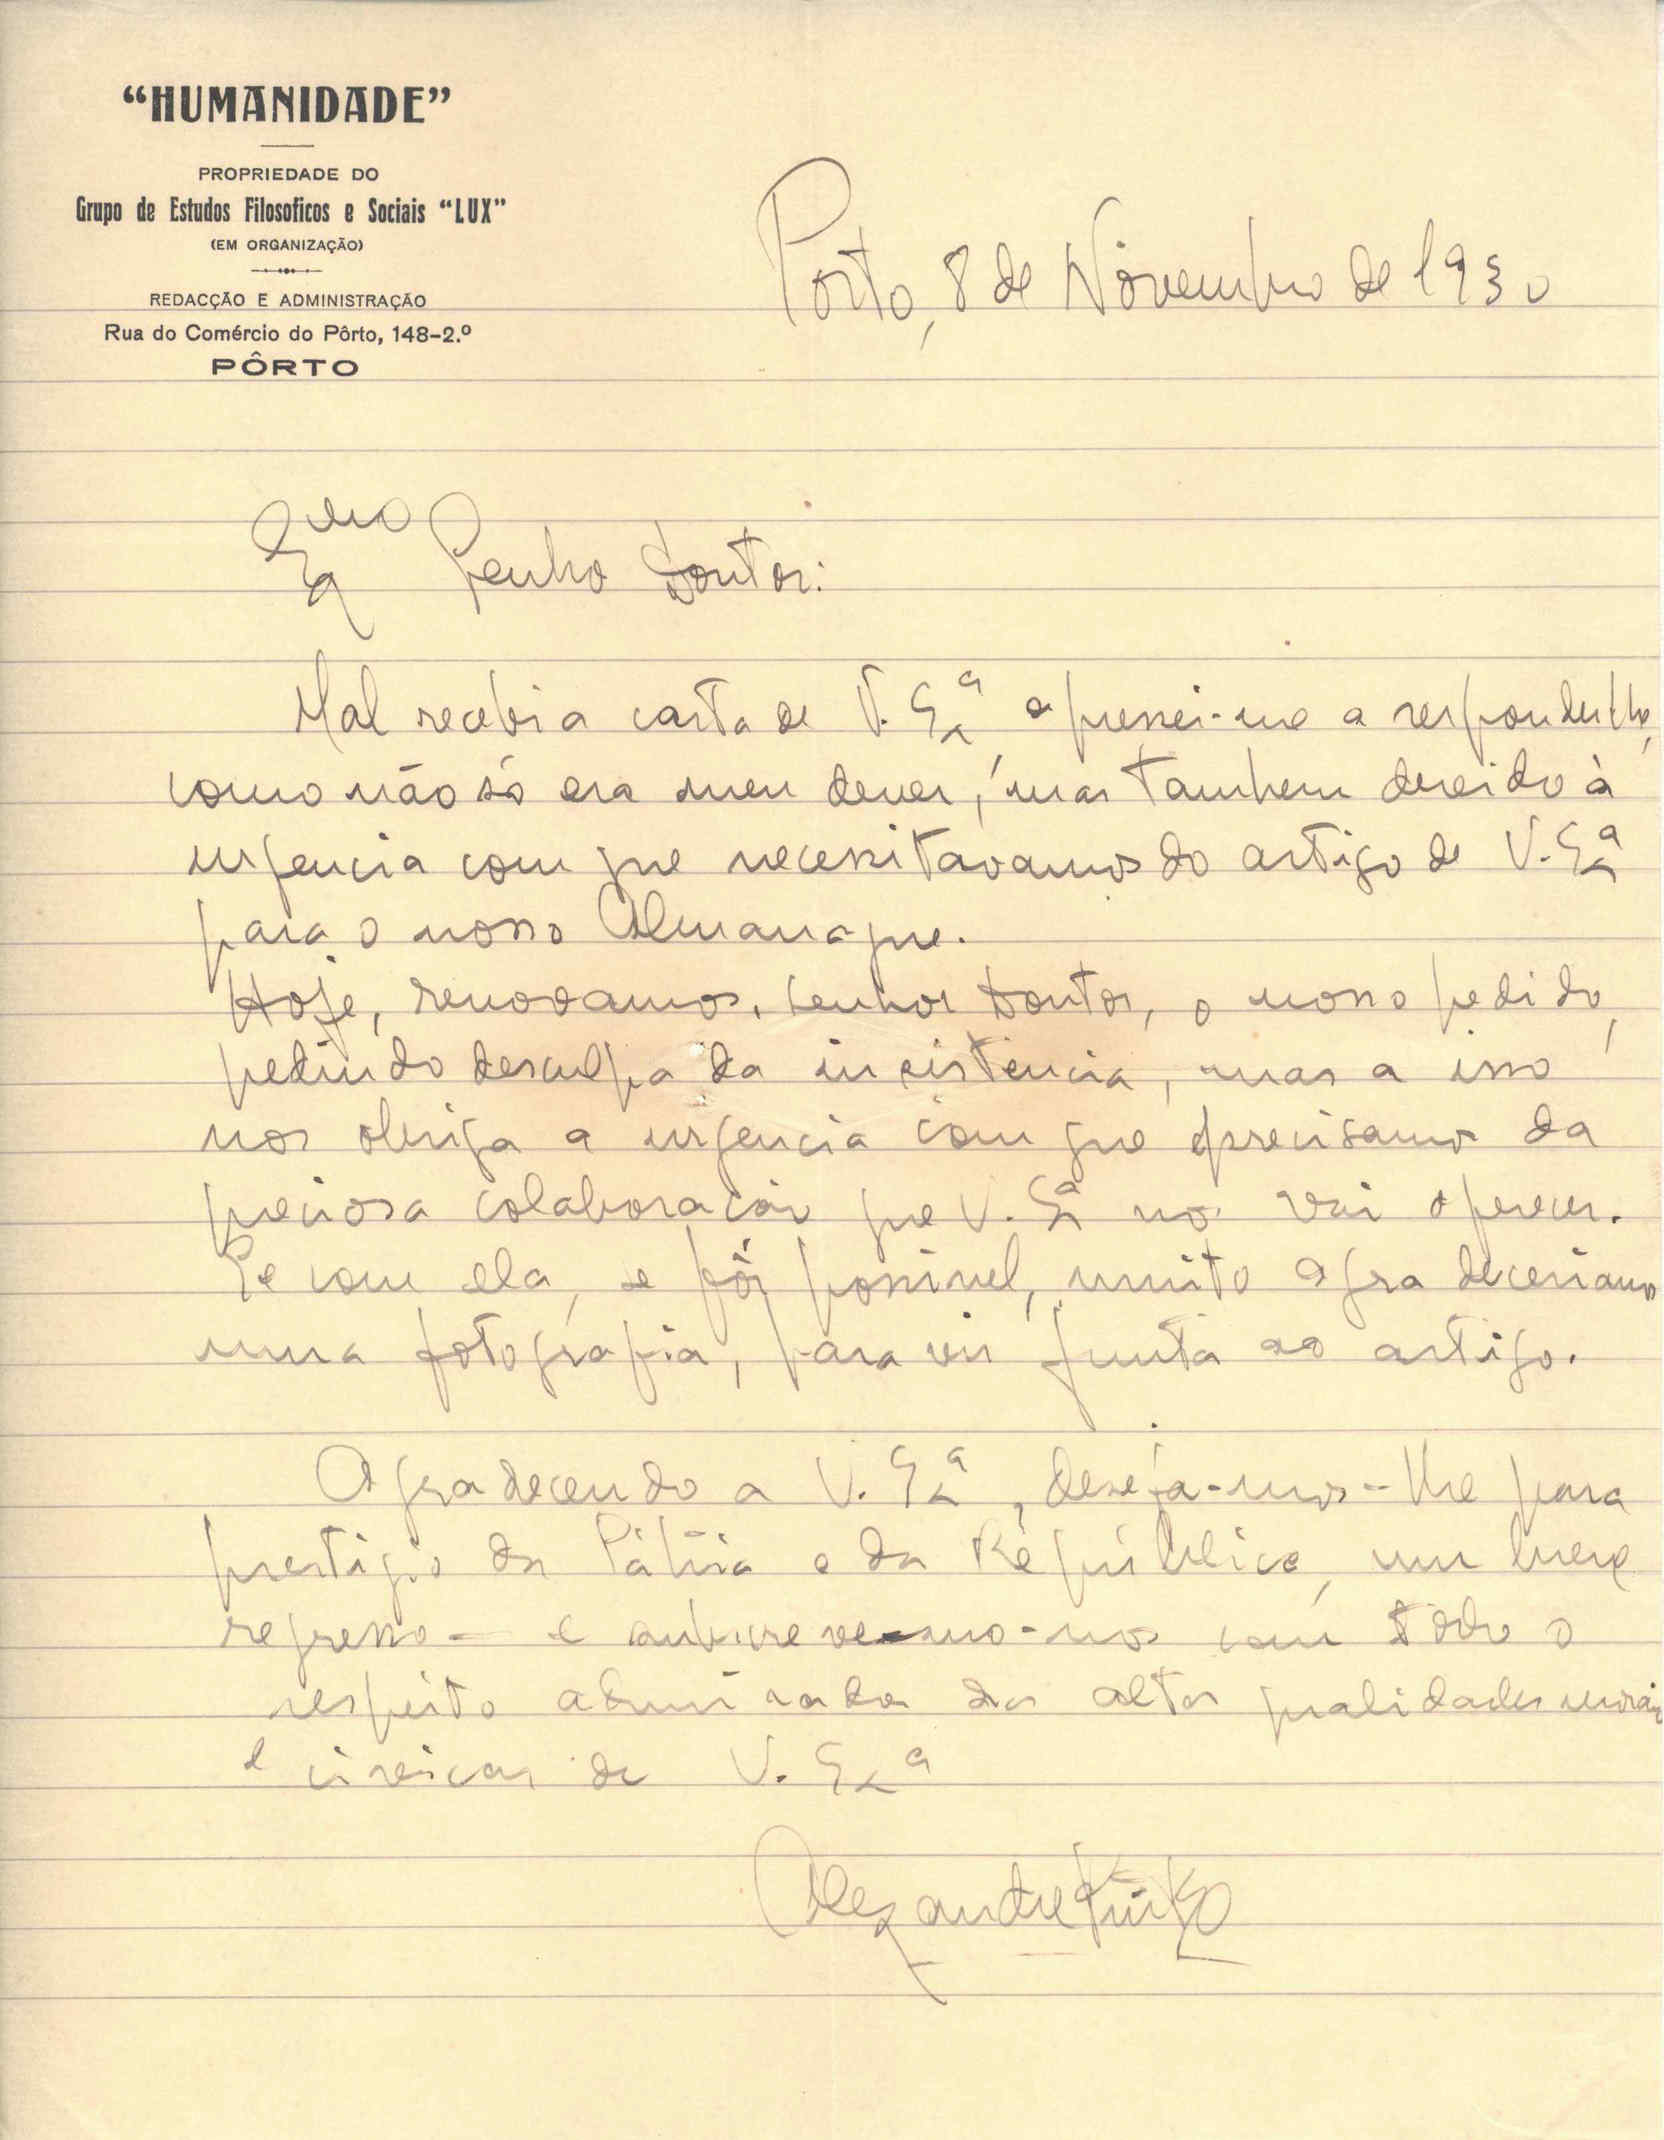 “HUMANIDADE”
PROPRIEDADE DO
Grupo de Estudos Filosoficos e Sociais “LUX”
(EM ORGANIZAÇÃO)
REDACÇÃO E ADMINISTRAÇÃO
Rua do Comércio do Pôrto, 148-2.º
PÔRTO
Porto, 8 de Novembro de 1930
Senhor Doutor:
Mal recebi a carta de V. Exª apressei-me a responder-lhe,
como não só era meu dever, mas tambem devido à
urgencia com que necessitavamos do artigo de V. Exª
para o nosso Almanaque.
Hoje, renovamos, senhor Doutor, o nosso pedido,
pedindo desculpa da insistência, mas a isso
nos obriga a urgencia com que precisamos da
preciosa colaboração que V. Exª nos vai oferecer.
E com ela, se fôr possivel, muito agradeceriamos
uma fotografia, para vir junta ao artigo.
Agradecendo a V. Exª, deseja-mos-lhe para
prestigio da Pátria e da República, um breve
regresso - e subscrevemo-nos com todo o
respeito das altas qualidades morais
e civicas de V. Exª
Alexandre